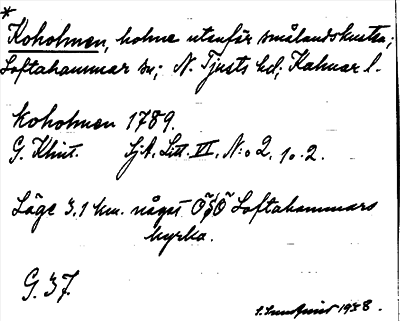 *
Koholmen, holme utanför smålandskusten;
Loftahammar sn; N. Tjusts hd; Kalmar l.
Koholmen 1789.
G. Klint. Sj.k. Litt. VI. N:o 2. 1 o. 2.
Läge 3,1 km. något ÖSÖ Loftahammars
kyrka.
G. 37.
S. Sundquist 1938.